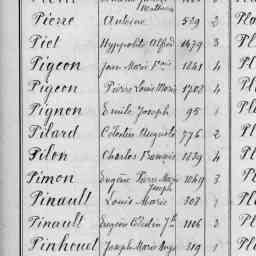 Mathurin
Pierre Antoine 539 2 Pla
Piet Hyppolite Alfred 1479 3 Pl
Pigeon Jean Marie 1241 4 Pl
Pigeon Pierre Louis Marie 1702 4 Pl
Pignon Emile Joseph 95 1 Pl
Pilard Célestin Auguste 776 2 Pl
Pilon Charles François 1239 4 Pl
Pimon Eugène Pierre Marie Joseph 1049 3 Pl
Pinault Louis Marie 303 1 Pl
Pinault Eugène Célestin Jh 1106 2 Pl
Pinhouet Joseph Marie Ange 319 1 Pl